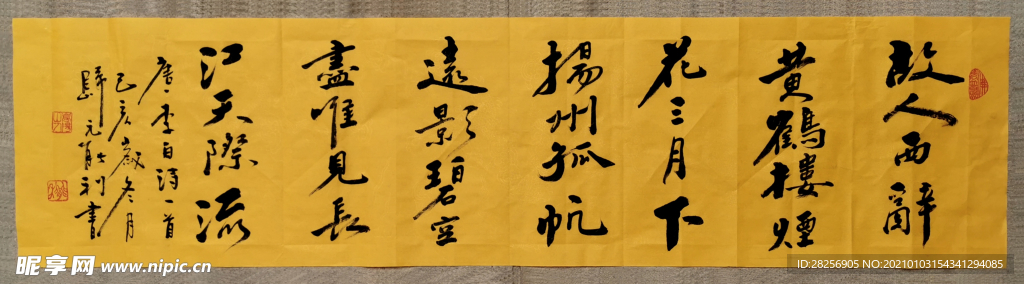 故人西辭
黄鶴樓煙
花三月下
揚州孤帆
遠影碧空
盡唯見長
江天際流
唐·李白詩一首
己亥歲冬月
元利書
昵享网 www.nipic.cn
ID:28256905 NO:20210103154341294085